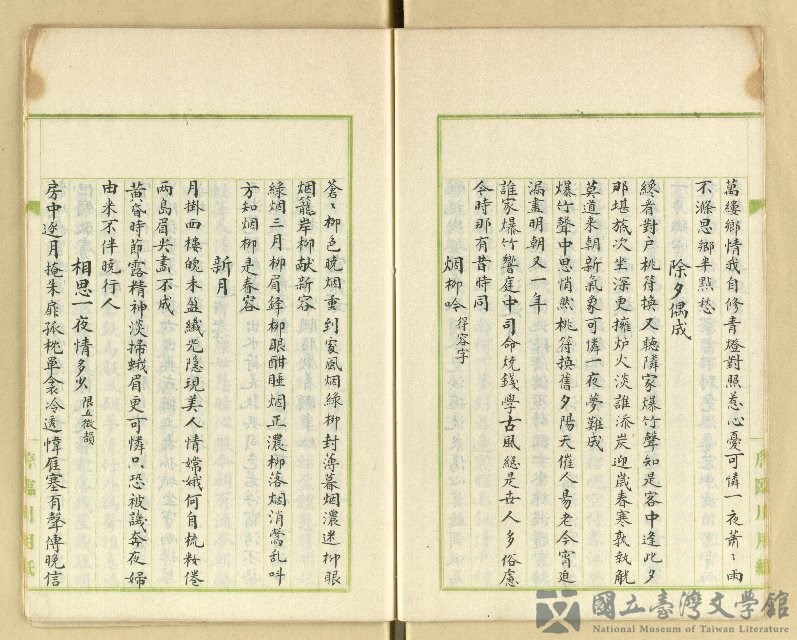 萬縷鄉情我自修青燈對照惹心憂可憐一夜蕭〻雨
不滌思鄉半點愁
除夕偶成
終宵對户桃符換又聽隣家爆竹聲知是客中逢此夕
那堪旅次坐深更擁炉火淡誰添炭迎歲春寒孰執觥
莫道来朝新氣象可憐一夜夢難成
爆竹聲中思悄然桃符換舊夕陽天催人易老今宵迫
漏盡明朝又一年
誰家爆竹響庭中司命焼錢學古風總是世人多俗慮
今時那有昔時同
烟柳吟 得容字
蒼〻柳色晚烟重到家風烟綠柳封薄暮烟濃迷柳眼
烟籠岸柳献新容
綠烟三月柳眉鋒柳眼酣睡烟正濃柳落烟消鶯乱叫
方知烟柳是春容
新月
月掛西樓魄未盆纖光隱現美人情嫦娥何自梳粧倦
两島眉尖畫不成
黄昏時節露精神淡掃蛾眉更可憐只恐被譏奔夜婦
由来不伴晚行人
相思一夜情多少 限五微韻
房中逐月掩朱扉孤枕單衾冷透幃雁塞有聲傳晚信
席臨川用紙
國立臺灣文學館
National Museum of Taiwan Literature